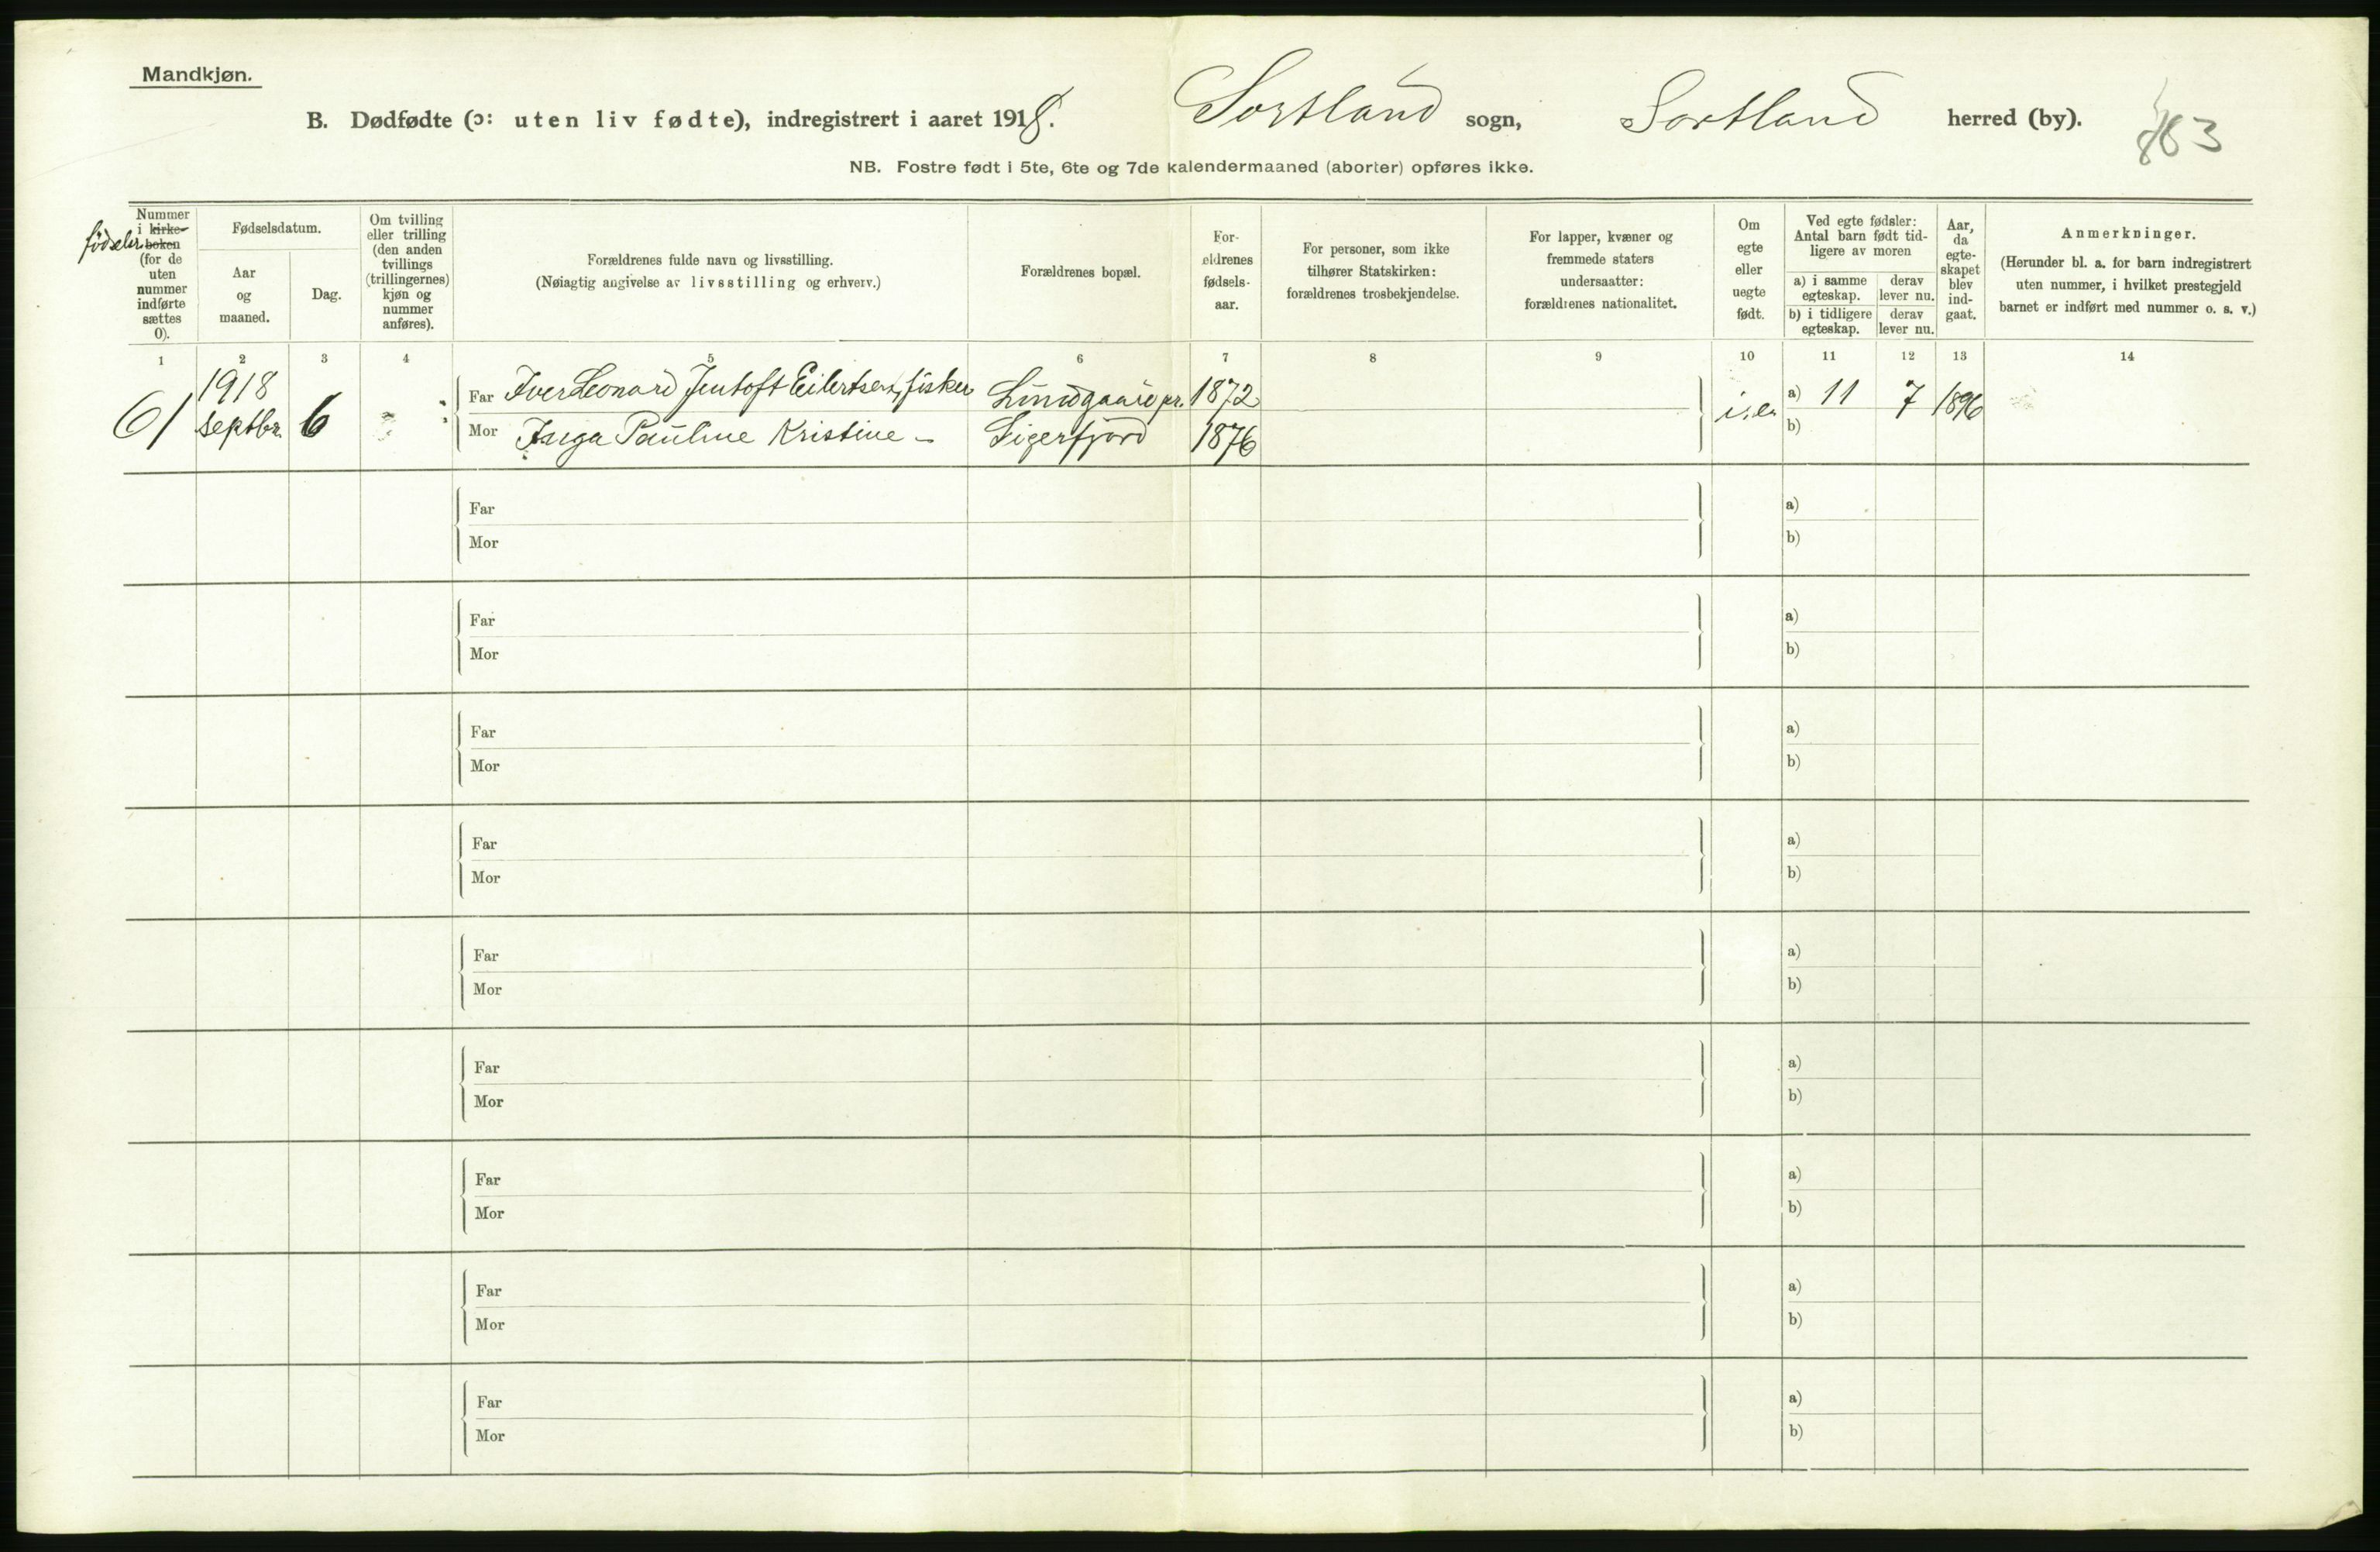 Mandkjøn.
B. Dødfødte (ɔ: uten liv fødte), indregistrert i aaret 1918. Sortland sogn, Sortland herred (by).
NB. Fostre født i 5te, 6te og 7de kalendermaaned (aborter) opføres ikke.
Nummer
i kirke-
fødsels boken
(for de
uten
nummer
indførte
sættes
0).
Fødselsdatum.
Aar
og
maaned.
Dag.
Om tvilling
eller trilling
(den anden
tvillings
(trillingernes)
kjøn og
nummer
anføres).
Forældrenes fulde navn og livsstilling.
(Nøiagtig angivelse av livsstilling og erhverv.)
Forældrenes bopæl.
For-
ældrenes
fødsels-
aar.
For personer, som ikke
tilhører Statskirken:
forældrenes trosbekjendelse.
For lapper, kvæner og
fremmede staters
undersaatter:
forældrenes nationalitet.
Om
egte
eller
uegte
født.
Ved egte fødsler:
Antal barn født tid-
ligere av moren
a) i samme
egteskap.
derav
lever nu.
b) i tidligere
egteskap.
derav
lever nu.
Aar,
da
egte-
skapet
blev
ind-
gaat.
Anmerkninger.
(Herunder bl. a. for barn indregistrert
uten nummer, i hvilket prestegjeld
barnet er indført med nummer o. s. v.)
1 2 3 4 5 6 7 8 9 10 11 12 13 14
1918 Far Iver Leonard Jentoft Eilertsen, fisker Lundgaard pr. 1872 a) 11 7 1896
61 septbr. 6 Mor Inga Pauline Kristine - Sigerfjord 1876 b)
Far a)
Mor b)
Far a)
Mor b)
Far a)
Mor b)
Far a)
Mor b)
Far a)
Mor b)
Far a)
Mor b)
Far a)
Mor b)
Far a)
Mor b)
Far a)
Mor b)